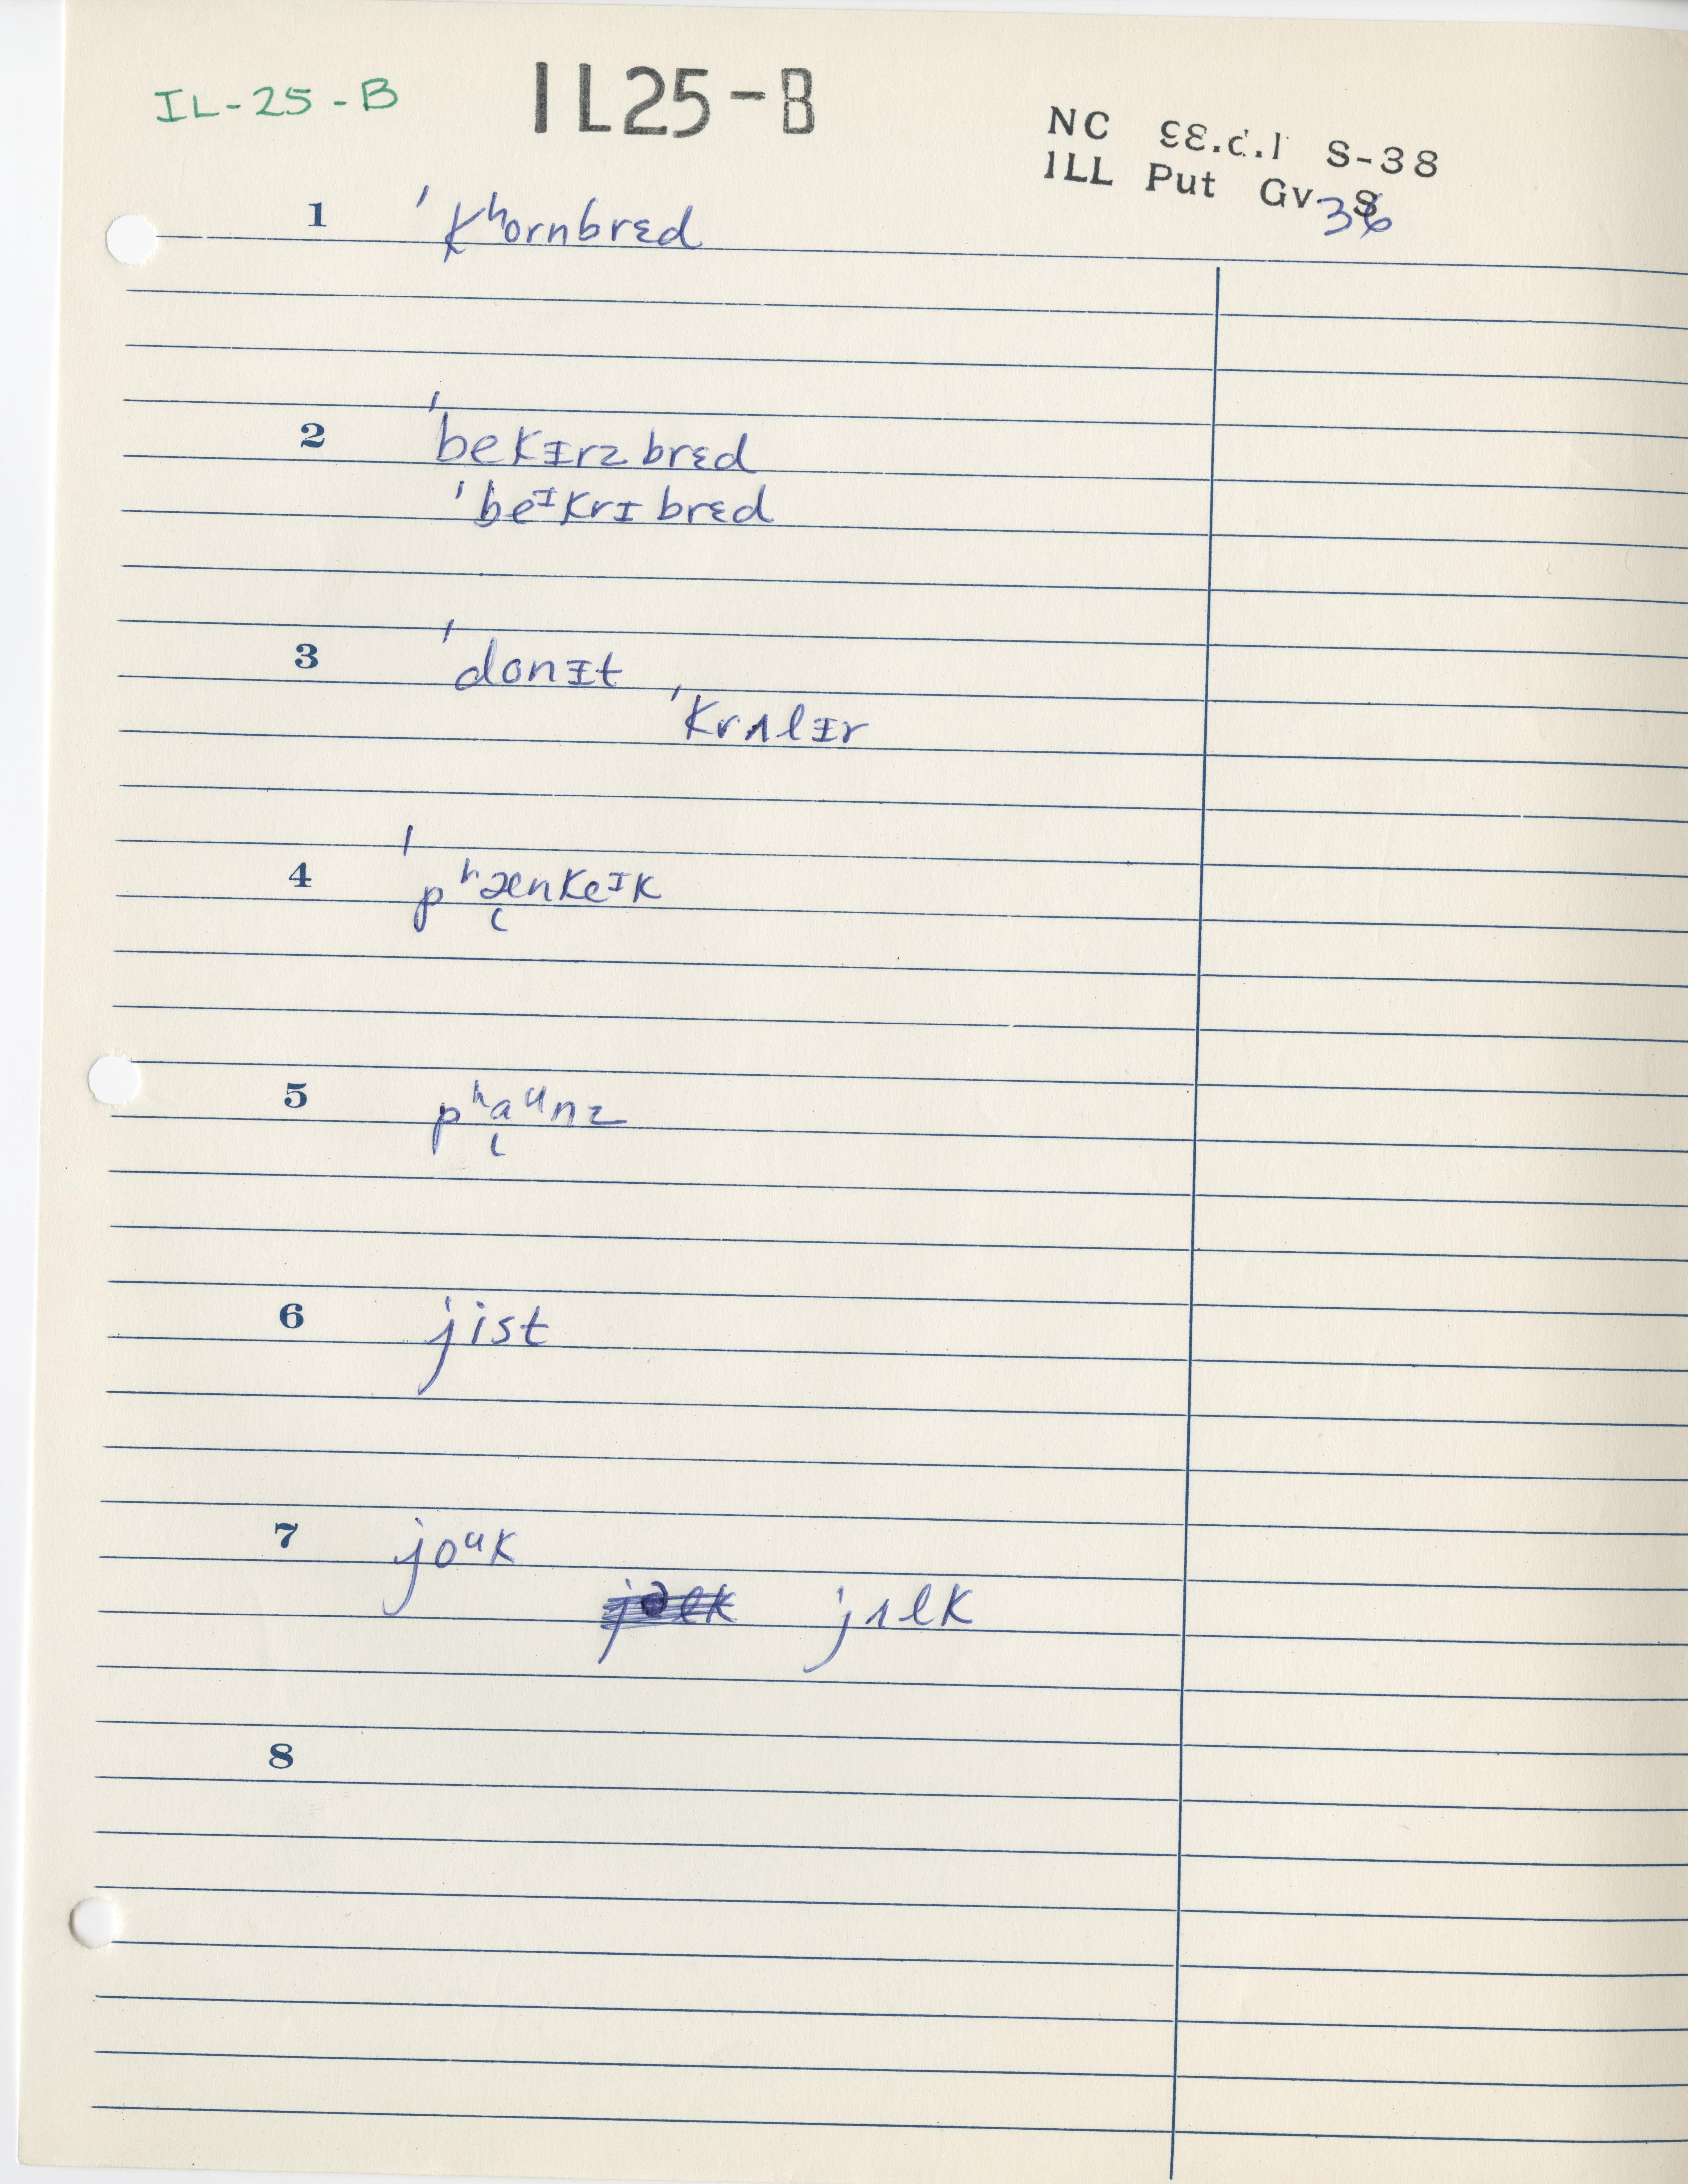 IL-25-B
IL25-B
NC S-38
ILL Put Gv 36
1 ˈkʰornbrɛd
2 ˈbekɪrz brɛd
ˈbeᶦkrɪ brɛd
3 ˈdonɪt
ˈkrʌlɪr
4 ˈpʰæ̨nkeᶦk
5 pʰa̜ᵘnz
6 jist
7 joᵘk
jʌlk
8